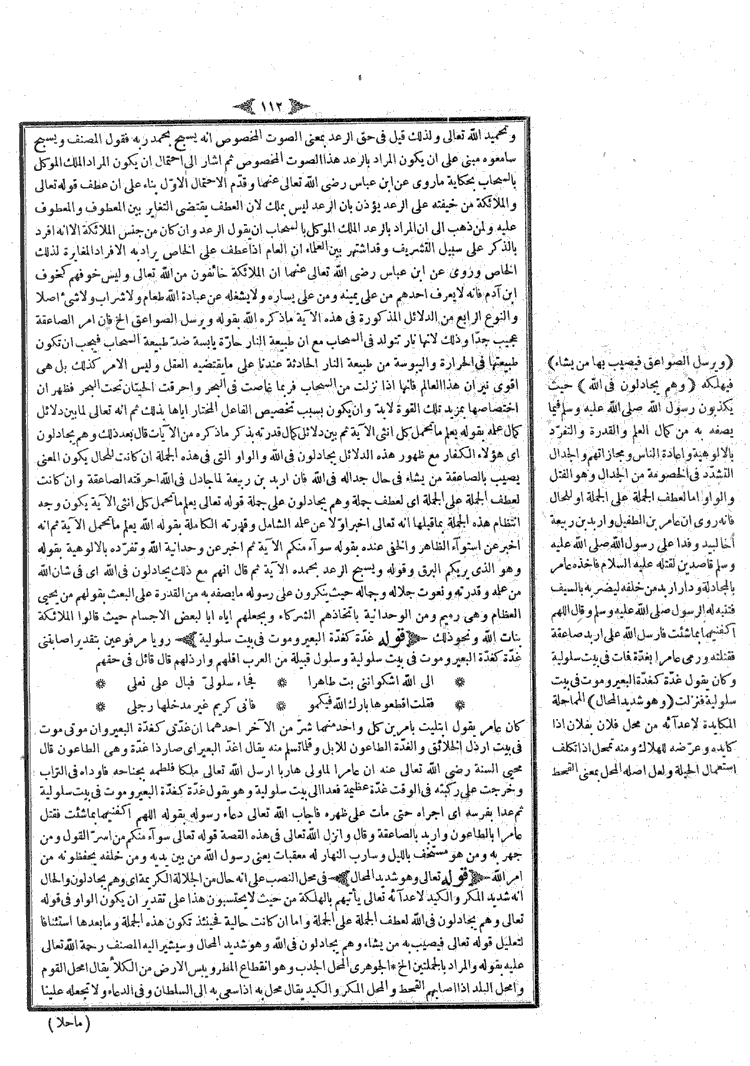 ﴿ ١١٢ ﴾
وتحميد الله تعالى ولذلك قيل فى حق الرعد بمعنى الصوت المخصوص انه يسبح بحمد ربه فقول المصنف ويسبح
سامعوه مبنى على ان يكون المراد بالرعد هذا الصوت المخصوص ثم اشار الى احتمال ان يكون المراد الملك الموكل
بالسحاب بحكاية ماروى عن ابن عباس رضى الله تعالى عنهما وقدّم الاحتمال الاوّل بناء على ان عطف قوله تعالى
والملائكة من خيفته على الرعد يؤذن بان الرعد ليس بملك لان العطف يقتضى التغاير بين المعطوف والمعطوف
عليه ولمن ذهب الى ان المراد بالرعد الملك الموكل بالسحاب ان يقول الرعد وان كان من جنس الملائكة الا انه افرد
بالذكر على سبيل التشريف وقد اشتهر بين العلماء ان العام اذا عطف على الخاص يراد به الافراد المغايرة لذلك
الخاص وروى عن ابن عباس رضى الله تعالى عنهما ان الملائكة خائفون من الله تعالى وليس خوفهم كخوف
ابن آدم فانه لا يعرف احدهم من على يمينه ومن على يساره ولا يشغله عن عبادة الله طعام ولا شراب ولا شىء اصلا
والنوع الرابع من الدلائل المذكورة فى هذه الآية ماذكره الله بقوله ويرسل الصواعق الخ فان امر الصاعقة
عجيب جدّا وذلك لانها نار تتولد فى السحاب مع ان طبيعة النار حارّة يابسة ضدّ طبيعة السحاب فيجب ان تكون
طبيعتها فى الحرارة واليبوسة من طبيعة النار الحادثة عندنا على مايقتضيه العقل وليس الامر كذلك بل هى
اقوى نيران هذا العالم فانها اذا نزلت من السحاب فربما غاصت فى البحر واحرقت الحيتان تحت البحر فظهر ان
اختصاصها بمزيد تلك القوة لابدّ وان يكون بسبب تخصيص الفاعل المختار اياها بذلك ثم انه تعالى لما بين دلائل
كمال علمه بقوله يعلم ماتحمل كل انثى الآية ثم بين دلائل كمال قدرته بذكر ماذكره من الآيات قال بعد ذلك وهم يجادلون
اى هؤلاء الكفار مع ظهور هذه الدلائل يجادلون فى الله والواو التى فى هذه الجملة ان كانت للحال يكون المعنى
يصيب بالصاعقة من يشاء فى حال جداله فى الله فان اربد بن ربيعة لما جادل فى الله احرقته الصاعقة وان كانت
لعطف الجملة على الجملة اى لعطف جملة وهم يجادلون على جملة قوله تعالى يعلم ماتحمل كل انثى الآية يكون وجه
انتظام هذه الجملة بماقبلها انه تعالى اخبر اوّلا عن علمه الشامل وقدرته الكاملة بقوله الله يعلم ماتحمل الآية ثم انه
اخبر عن استوآء الظاهر والخفى عنده بقوله سوآء منكم الآية ثم اخبر عن وحدانية الله وتفرّده بالالوهية بقوله
وهو الذى يريكم البرق وقوله ويسبح الرعد بحمده الآية ثم قال انهم مع ذلك يجادلون فى الله اى فى شان الله
من علمه وقدرته ونعوت جلاله وجماله حيث ينكرون على رسوله مايصفه به من القدرة على البعث بقولهم من يحيى
العظام وهى رميم ومن الوحدانية باتخاذهم الشركاء ويجعلهم اياه ابا لبعض الاجسام حيث قالوا الملائكة
بنات الله ونحو ذلك ﴿ قوله غدّة كغدّة البعير وموت فى بيت سلولية ﴾ رويا مرفوعين بتقدير اصابتنى
غدّة كغدّة البعير وموت فى بيت سلولية وسلول قبيلة من العرب اقلهم وارذلهم قال قائل فى حقهم
الى الله اشكو اننى بت طاهرا * فجاء سلولىّ فبال على نعلى
فقلت اقطعوها بارك الله فيكمو * فانى كريم غير مدخلها رجلى
كان عامر يقول ابتليت بامرين كل واحد منهما شرّ من الآخر احدهما ان غدّتى كغدّة البعير وان موتى موت
فى بيت ارذل الخلائق والغدّة الطاعون للابل وقلما تسلم منه يقال اغدّ البعير اى صار ذا غدّة وهى الطاعون قال
محيى السنة رضى الله تعالى عنه ان عامرا لما ولى هاربا ارسل الله تعالى ملكا فلطمه بجناحه فاوداه فى التراب
وخرجت على ركبته فى الوقت غدّة عظيمة فعدا الى بيت سلولية وهو يقول غدّة كغدّة البعير وموت فى بيت سلولية
ثم عدا بفرسه اى اجراه حتى مات على ظهره فاجاب الله تعالى دعاء رسوله بقوله اللهم اكفنيهما بماشئت فقتل
عامرا بالطاعون واربد بالصاعقة وقال وانزل الله تعالى فى هذه القصة قوله تعالى سوآء منكم من اسرّ القول ومن
جهر به ومن هو مستخف بالليل وسارب بالنهار له معقبات يعنى رسول الله من بين يديه ومن خلفه يحفظونه من
امر الله ﴿ قوله تعالى وهو شديد المحال ﴾ فى محل النصب على انه حال من الجلالة الكريمة اى وهم يجادلون والحال
انه شديد المكر والكيد لاعدآئه تعالى يأتيهم بالهلكة من حيث لا يحتسبون هذا على تقدير ان يكون الواو فى قوله
تعالى وهم يجادلون فى الله لعطف الجملة على الجملة واما ان كانت حالية فحينئذ تكون هذه الجملة ومابعدها استئنافا
لتعليل قوله تعالى فيصيب به من يشاء وهم يجادلون فى الله وهو شديد المحال وسيشير اليه المصنف رحمة الله تعالى
عليه بقوله والمراد بالجملتين الخ * الجوهرى المحل الجدب وهو انقطاع المطر ويبس الارض من الكلأ يقال امحل القوم
وامحل البلد اذا اصابهم القحط والمحل المكر والكيد يقال محل به اذا سعى به الى السلطان وفى الدعاء ولا تجعله علينا
( ماحلا )
(ويرسل الصواعق فيصيب بها من يشاء)
فيهلكه (وهم يجادلون فى الله) حيث
يكذبون رسول الله صلى الله عليه وسلم فيما
يصفه به من كمال العلم والقدرة والتفرّد
بالالوهية واعادة الناس ومجازاتهم والجدال
التشدّد فى الخصومة من الجدل وهو الفتل
والواو اما لعطف الجملة على الجملة او للحال
فانه روى ان عامر بن الطفيل واربد بن ربيعة
أخا لبيد وفدا على رسول الله صلى الله عليه
وسلم قاصدين لقتله عليه السلام فاخذه عامر
بالمجادلة ودار اربد من خلفه ليضربه بالسيف
فتنبه له الرسول صلى الله عليه وسلم وقال اللهم
اكفنيهما بماشئت فارسل الله على اربد صاعقة
فقتلته ورمى عامرا بغدّة فمات فى بيت سلولية
وكان يقول غدّة كغدّة البعير وموت فى بيت
سلولية فنزلت (وهو شديد المحال) المماحلة
المكايدة لاعدآئه من محل فلان بفلان اذا
كايده وعرّضه للهلاك ومنه تمحل اذا تكلف
استعمال الحيلة ولعل اصله المحل بمعنى القحط